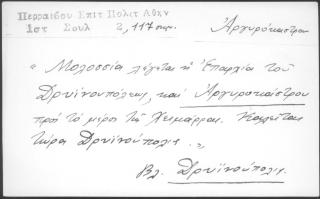 Περραιβου Επιτ Πολιτ Αθην
Ιστ Σουλ 2, 117 σημ.
Αργυρόκαστρον
« Μολοσσία λέγεται η Επαρχία του
Δρυϊνουπόλεως, και Αργυροκάστρου
προς το μέρος της Χειμάρρας. Καλείται
τώρα Δρυϊνούπολις. »
Βλ. Δρυϊνούπολις.